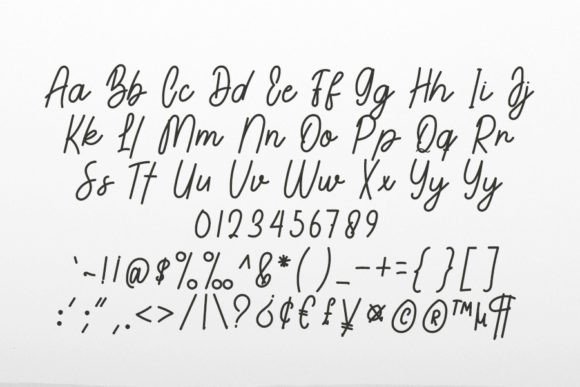 Aa Bb Cc Dd Ee Ff Gg Hh Ii Jj
Kk Ll Mm Nn Oo Pp Qq Rr
Ss Tt Uu Vv Ww Xx Yy Yy
0123456789
`~!¡@$%‰^&*()_-+={}[]
:';",.<>/|\?¿¢€£¥¤©®™µ¶